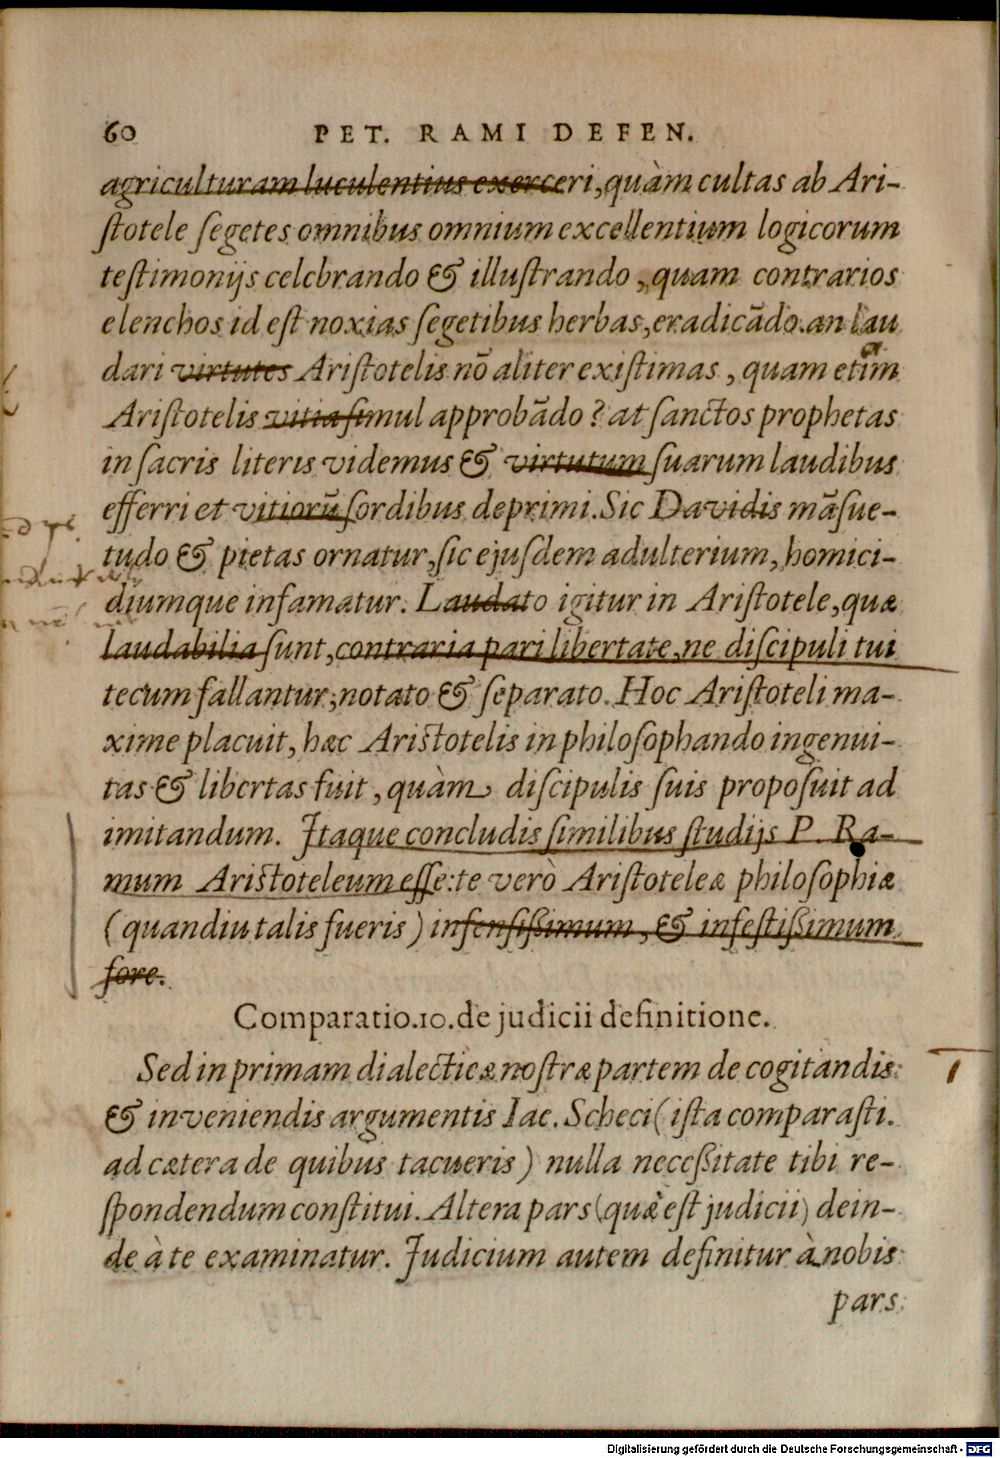 60 PET. RAMI DEFEN.
agriculturam luculentius exerceri, quàm cultas ab Ari-
stotele segetes omnibus omnium excellentium logicorum
testimonijs celebrando & illustrando, quam contrarios
elenchos id est noxias segetibus herbas, eradicãdo. an lau
dari virtutes Aristotelis nõ aliter existimas, quam etiã
Aristotelis vitia simul approbãdo? at sanctos prophetas
in sacris literis videmus & virtutum suarum laudibus
efferri et vitiorũ sordibus deprimi. Sic Davidis mãsue-
tudo & pietas ornatur, sic ejusdem adulterium, homici-
diumque infamatur. Laudato igitur in Aristotele, quæ
laudabilia sunt, contraria pari libertate, ne discipuli tui
tecum fallantur, notato & separato. Hoc Aristoteli ma-
xime placuit, hæc Aristotelis in philosophando ingenui-
tas & libertas fuit, quàm discipulis suis proposuit ad
imitandum. Itaque concludis similibus studijs P. Ra-
mum Aristoteleum esse: te verò Aristoteleæ philosophiæ
(quandiu talis fueris) infensissimum, & infestissimum
fore.
Comparatio. 10. de judicii definitione.
Sed in primam dialecticæ nostræ partem de cogitandis
& inveniendis argumentis Iac. Scheci (ista comparasti.
ad cætera de quibus tacueris) nulla necessitate tibi re-
spondendum constitui. Altera pars (quæ est judicii) dein-
de à te examinatur. Judicium autem definitur à nobis
pars
Digitalisierung gefördert durch die Deutsche Forschungsgemeinschaft - DFG